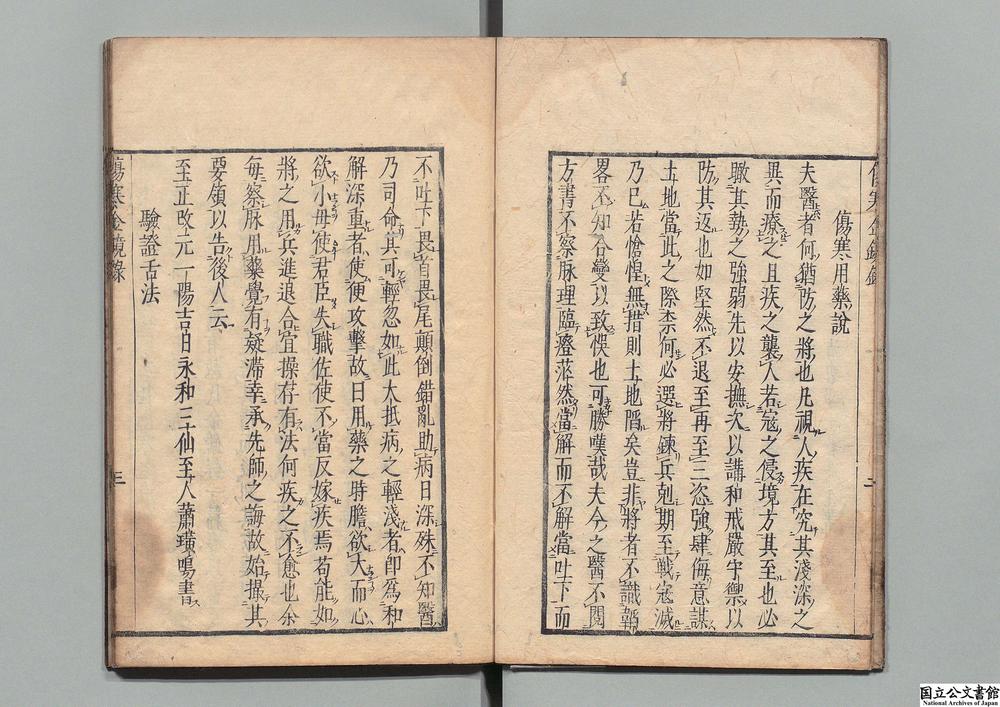 傷寒用藥說
夫醫者何猶防之將也凡視人疾在究其淺深之
異而療之且疾之襲人若寇之侵境方其至也必
瞰其勢之強弱先以安撫次以講和戒嚴守禦以
防其返也如堅然不退至再至三恣強肆侮意謀
土地當此之際柰何必選將鍊兵剋期至戰寇滅
乃已若愴惶無措則土地陷矣豈非將者不識韜
畧不知合變以致悞也可勝嘆哉夫今之醫不閱
方書不察脉理臨證茫然當解而不解當吐下而
二
不吐下畏首畏尾顛倒錯亂助病日深殊不知醫
乃司命其可輕忽如此大抵病之輕淺者卽爲和
解深重者使便攻擊故曰用藥之時膽欲大而心
欲小毋使君臣失職佐使不當反嫁疾焉苟能如
將之用兵進退合宜操存有法何疾之不愈也余
每察脉用藥覺有疑滯幸承先師之誨故始撮其
要領以告後人云
至正改元一陽吉日永和三仙至人蕭璜鳴書
驗證舌法
傷寒金鏡錄
三
国立公文書館
National Archives of Japan